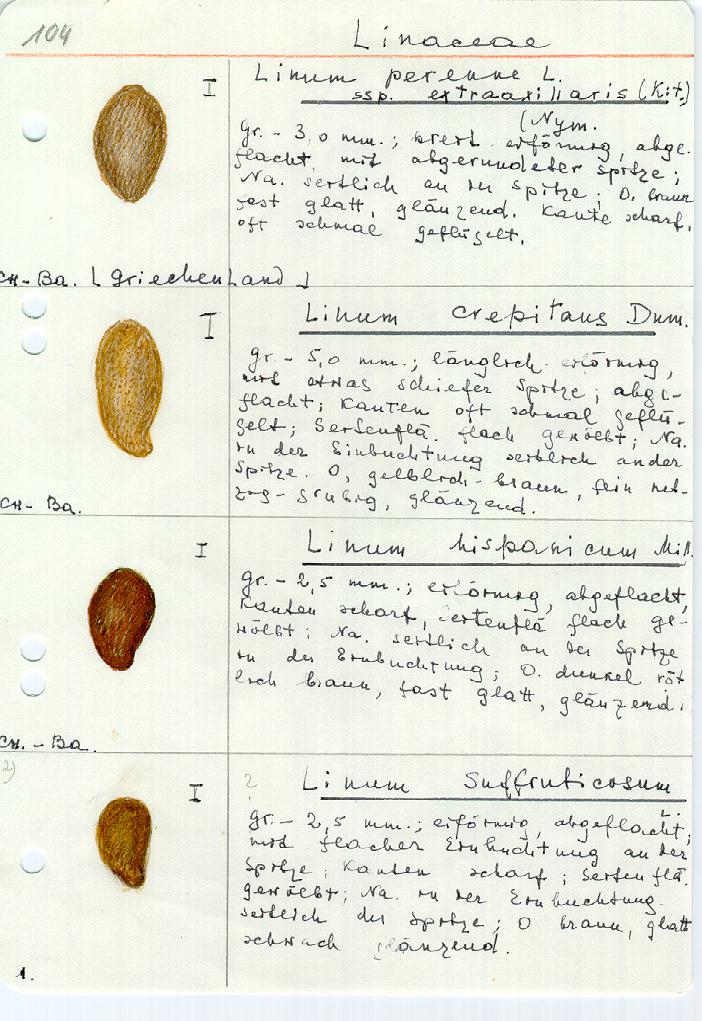 104
Linaceae
I
Linum perenne L.
ssp. extraaxillaris (Kit.)
(Nym.
gr. - 3,0 mm.; breit eiförmig, abge-
flacht, mit abgerundeter Spitze;
Na. seitlich an der Spitze; O. braun
fast glatt, glänzend. Kante scharf,
oft schmal geflügelt.
CH-Ba. [Griechenland]
I
Linum crepitans Dum.
gr. - 5,0 mm.; länglich eiförmig,
mit etwas schiefer Spitze; abge-
flacht; Kanten oft schmal geflü-
gelt; Seitenflä. flach gewölbt; Na.
in der Einbuchtung seitlich an der
Spitze. O, gelblich-braun, fein net-
zig-grubig, glänzend.
CH-Ba.
I
Linum hispanicum Mill.
gr. - 2,5 mm.; eiförmig, abgeflacht,
Kanten scharf, Seitenflä flach ge-
wölbt; Na. seitlich an der Spitze
in der Einbuchtung; O. dunkel röt
lich braun, fast glatt, glänzend.
CH.-Ba.
2)
I
? Linum Suffruticosum
L.
gr. - 2,5 mm.; eiförmig, abgeflacht;
mit flacher Einbuchtung an der
Spitze; Kanten scharf; Seitenflä.
gewölbt; Na. in der Einbuchtung
seitlich der Spitze; O braun, glatt
schwach glänzend.
1.